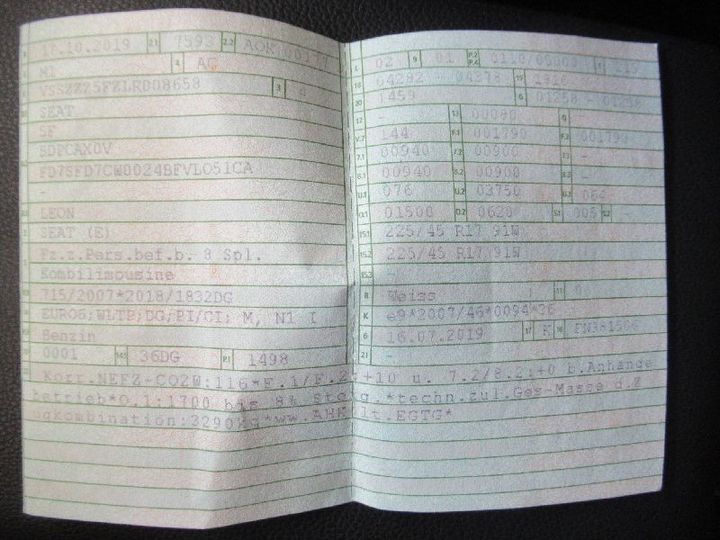 16.10.2019 2.1 7593 2.2 AOK 00177
M1 AC
VSSZZZ5FZLR008658 3 6
SEAT
5F
SDPCAX0V
FD7SFD7CW0024BFVLO51CA
-
LEON
SEAT (E)
Fz.z.Pers.bef.b. 8 Spl.
Kombilimousine
715/2007*2018/1832DG
EURO6;WLTP;DG;PI/CI; M, N1 I
Benzin
0001 36DG P.1 1498
L 02 9 01 P.2 P.4 0110/05000
18 04282 - 04278 19 1816
20 1459 G 01258
12 - 13 00080 Q -
V.7 144 F.1 001790 F.2 001790
7.1 00940 7.2 00900 -
8.1 00940 8.2 00900 -
U.1 076 U.2 03750
O.1 01500 O.2 0620 S.1 005 S.2 -
15.1 225/45 R17 91W
15.2 225/45 R17 91W
15.3 -
R Weiss 11 0
K e9*2007/46*0094*26
6 16.07.2019 17 K 16
21 -
Korr.NEFZ-CO2W:116*F.1/F.2:+10 u. 7.2/8.2:+0 b.Anhänge
betrieb*O.1:1700 bis 8% Steig.*techn.zul.Ges-Masse d.Z
ugkombination:3290KG*ww.AHK lt.EGTG*